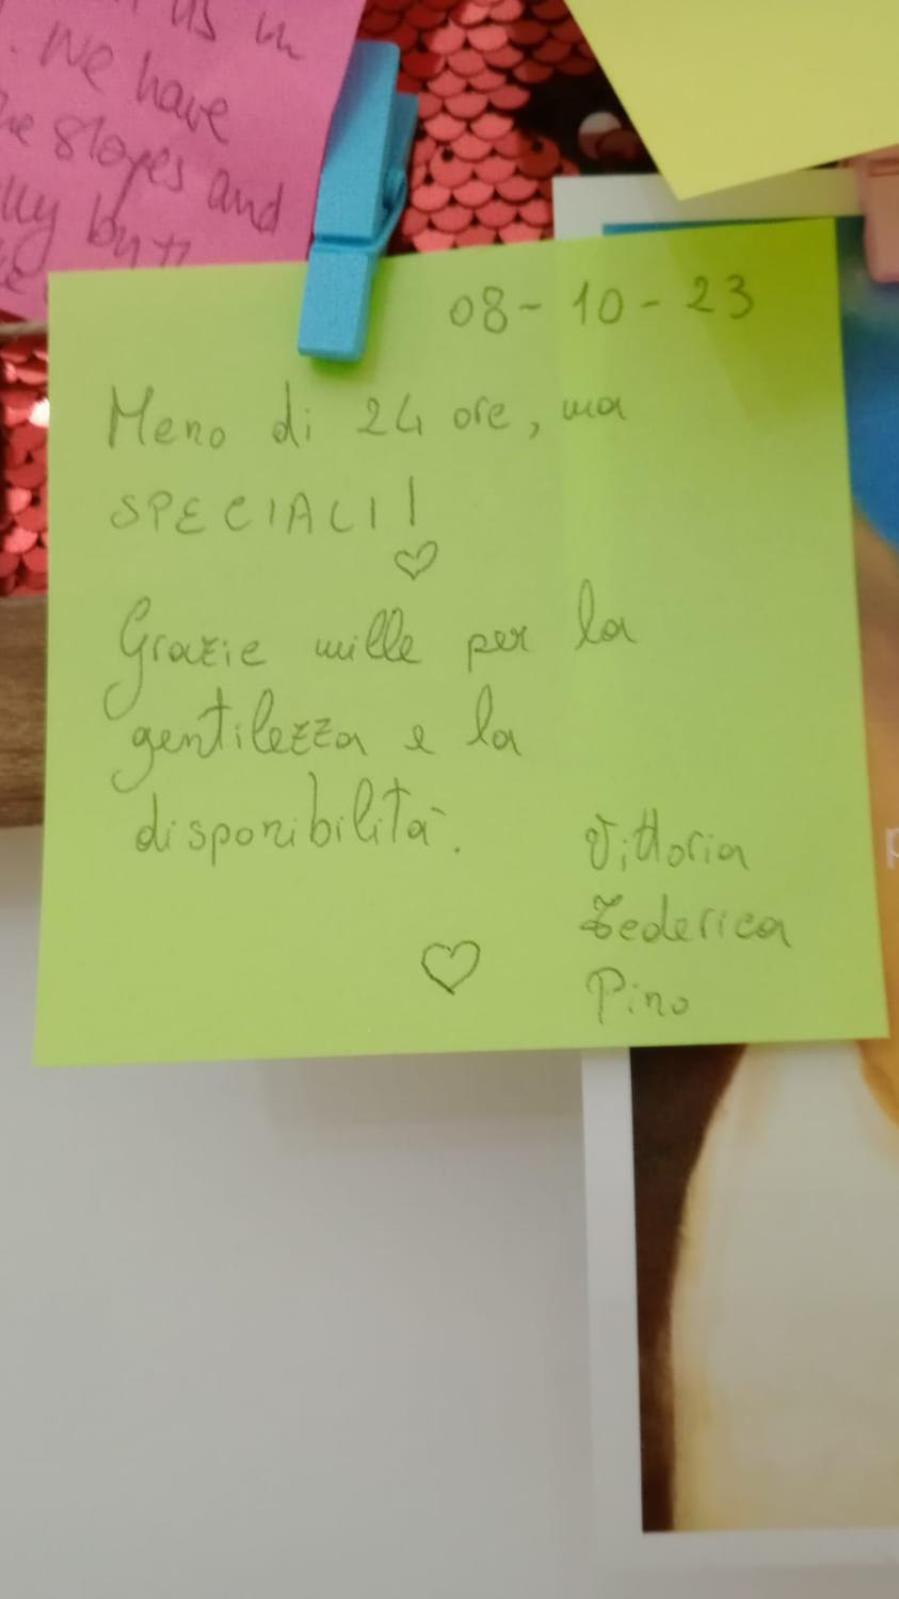 us in
. We have
he slopes and
lly but
08-10-23
Meno di 24 ore, ma
SPECIALI!
Grazie mille per la
gentilezza e la
disponibilità.
Vittoria
Federica
Pino